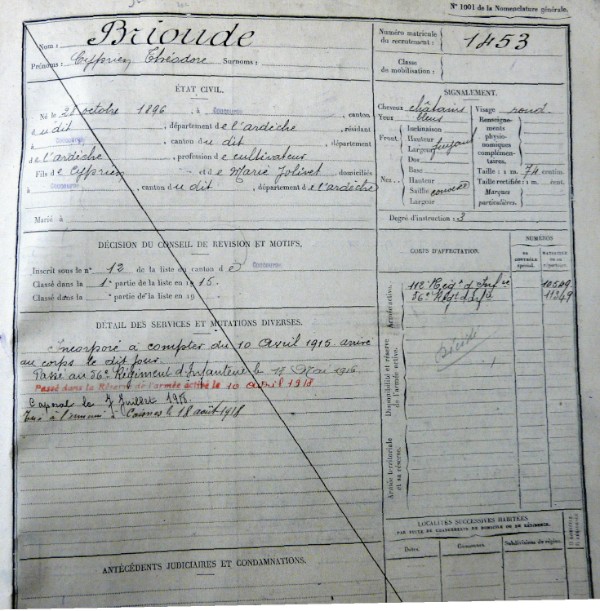 N° 1001 de la Nomenclature générale.
Nom : Brioude
Prénoms : Cyprien Théodore Surnoms :
Numéro matricule du recrutement : 1453
Classe de mobilisation :
ÉTAT CIVIL.
Né le octobre 1896, à canton
du dit, département de l'ardèche, résidant
à canton du dit, département
de l'ardèche, profession de cultivateur
Fils de Cyprien et de Marie Jolivet domiciliés
à canton du dit, département de l'ardèche
Marié à
SIGNALEMENT.
Cheveux châtains
Yeux bleus
Front. Inclinaison
Hauteur
Largeur fuyant
Nez Dos
Base
Hauteur
Saillie convexe
Largeur
Visage rond
Renseignements physionomiques complémentaires.
Taille : 1 m. 74 cent.
Taille rectifiée : 1 m. cent.
Marques particulières.
Degré d'instruction : 3
DÉCISION DU CONSEIL DE RÉVISION ET MOTIFS.
Inscrit sous le n° 12 de la liste du canton de
Classé dans la 1e partie de la liste en 1915.
Classé dans la partie de la liste en 19
CORPS D'AFFECTATION.
NUMÉROS
Armée active.
112e Régt d'Infie 10549
56e Régt d'Infie 11249
Disponibilité et réserve de l'armée active.
Armée territoriale et sa réserve.
DÉTAIL DES SERVICES ET MUTATIONS DIVERSES.
Incorporé à compter du 10 Avril 1915 arrivé
au corps le dit jour.
Passé au 56e Régiment d'Infanterie le Mai 1916.
Passé dans la Réserve de l'armée active le 10 avril 1918
Caporal le 7 Juillet 1918.
Tué à l'ennemi à le 18 août 1918
LOCALITÉS SUCCESSIVES HABITÉES
PAR SUITE DE CHANGEMENTS DE DOMICILE OU DE RÉSIDENCE.
Dates. Communes. Subdivisions de région.
ANTÉCÉDENTS JUDICIAIRES ET CONDAMNATIONS.